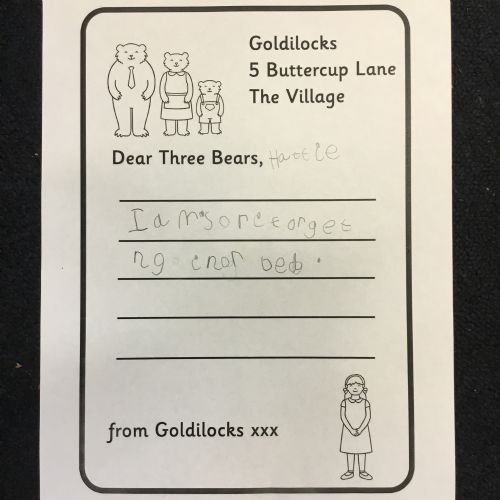 Goldilocks
5 Buttercup Lane
The Village
Dear Three Bears, Hattie
I am sore torget
ng bed.
from Goldilocks xxx